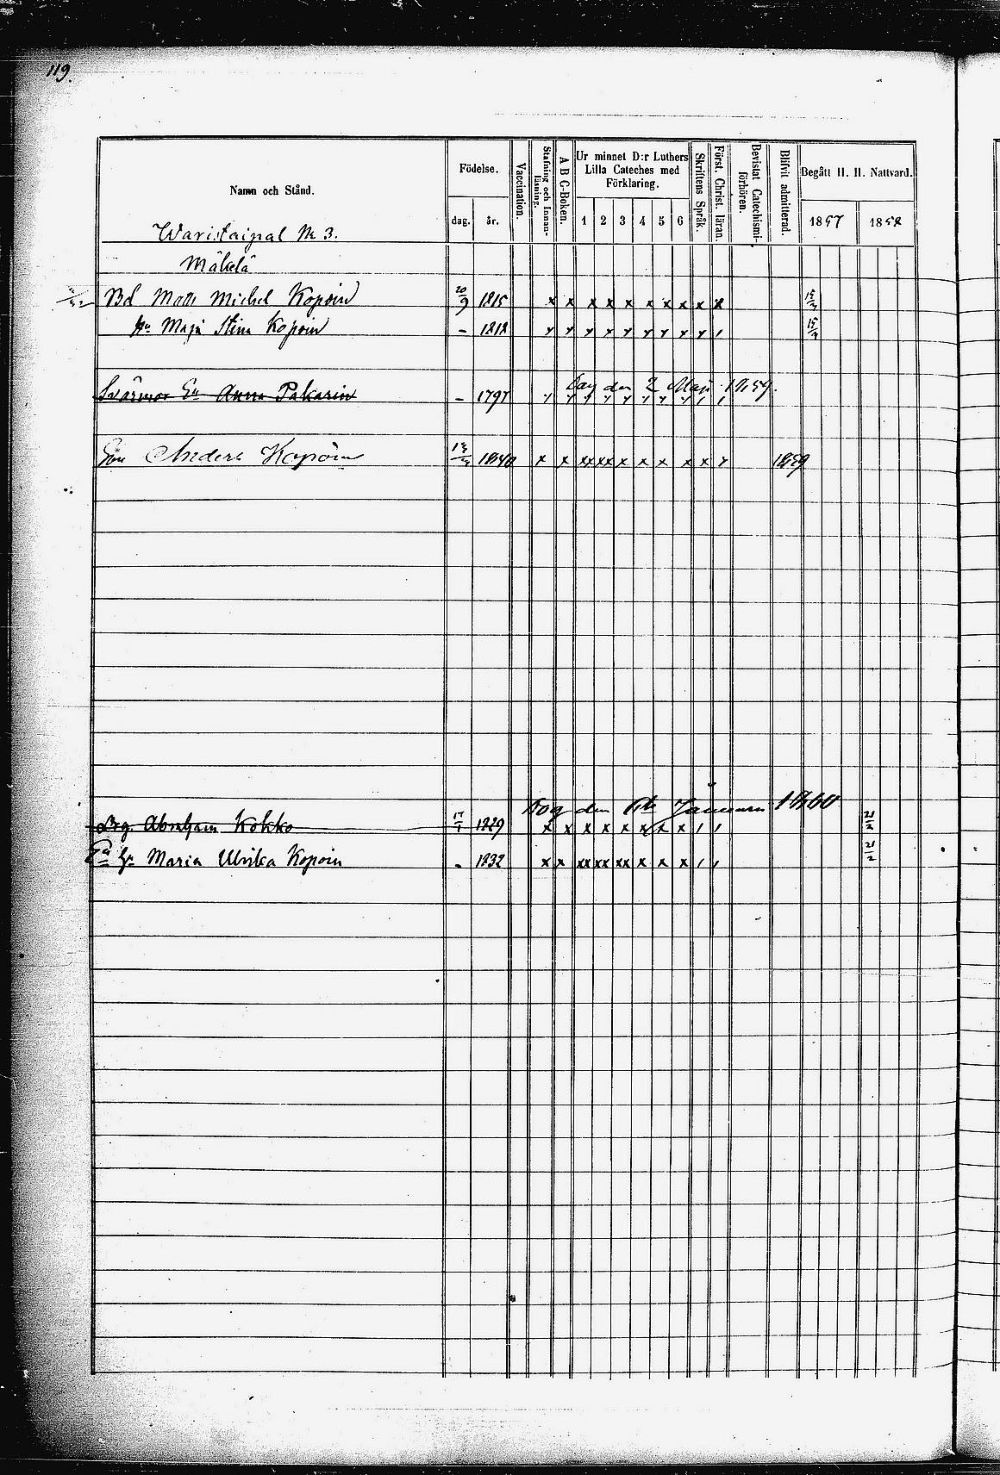 119.
Namn och Stånd.
Födelse.
dag.
år.
Vaccination.
Stafning och Innan-läsning.
A B C-Boken.
Ur minnet D:r Luthers
Lilla Cateches med
Förklaring.
1 2 3 4 5 6
Skriftens Språk.
Först. Christ. läran.
Bevistat Catechismi-förhören.
Blifvit admitterad.
Begått H. H. Nattvard.
1857 1858
Waristaipal № 3.
Mäkelä
Bd Matts Michel Kopoin 20/9 1815 x x x x x x x x x x x 15/3
hu Maja Stina Kopoin – 1812 15/3
Svärmor Ea Anna Pakarin – 1797
den 2 Maji 1859.
Son Anders Kopoin 1840 x x xx xx x x x x x 1859
den Januari 1860
Drg. Abraham Kokko 1829 x x x x x x x x x
Ea hu Maria Ulrika Kopoin – 1832 x x xx xx xx x x x